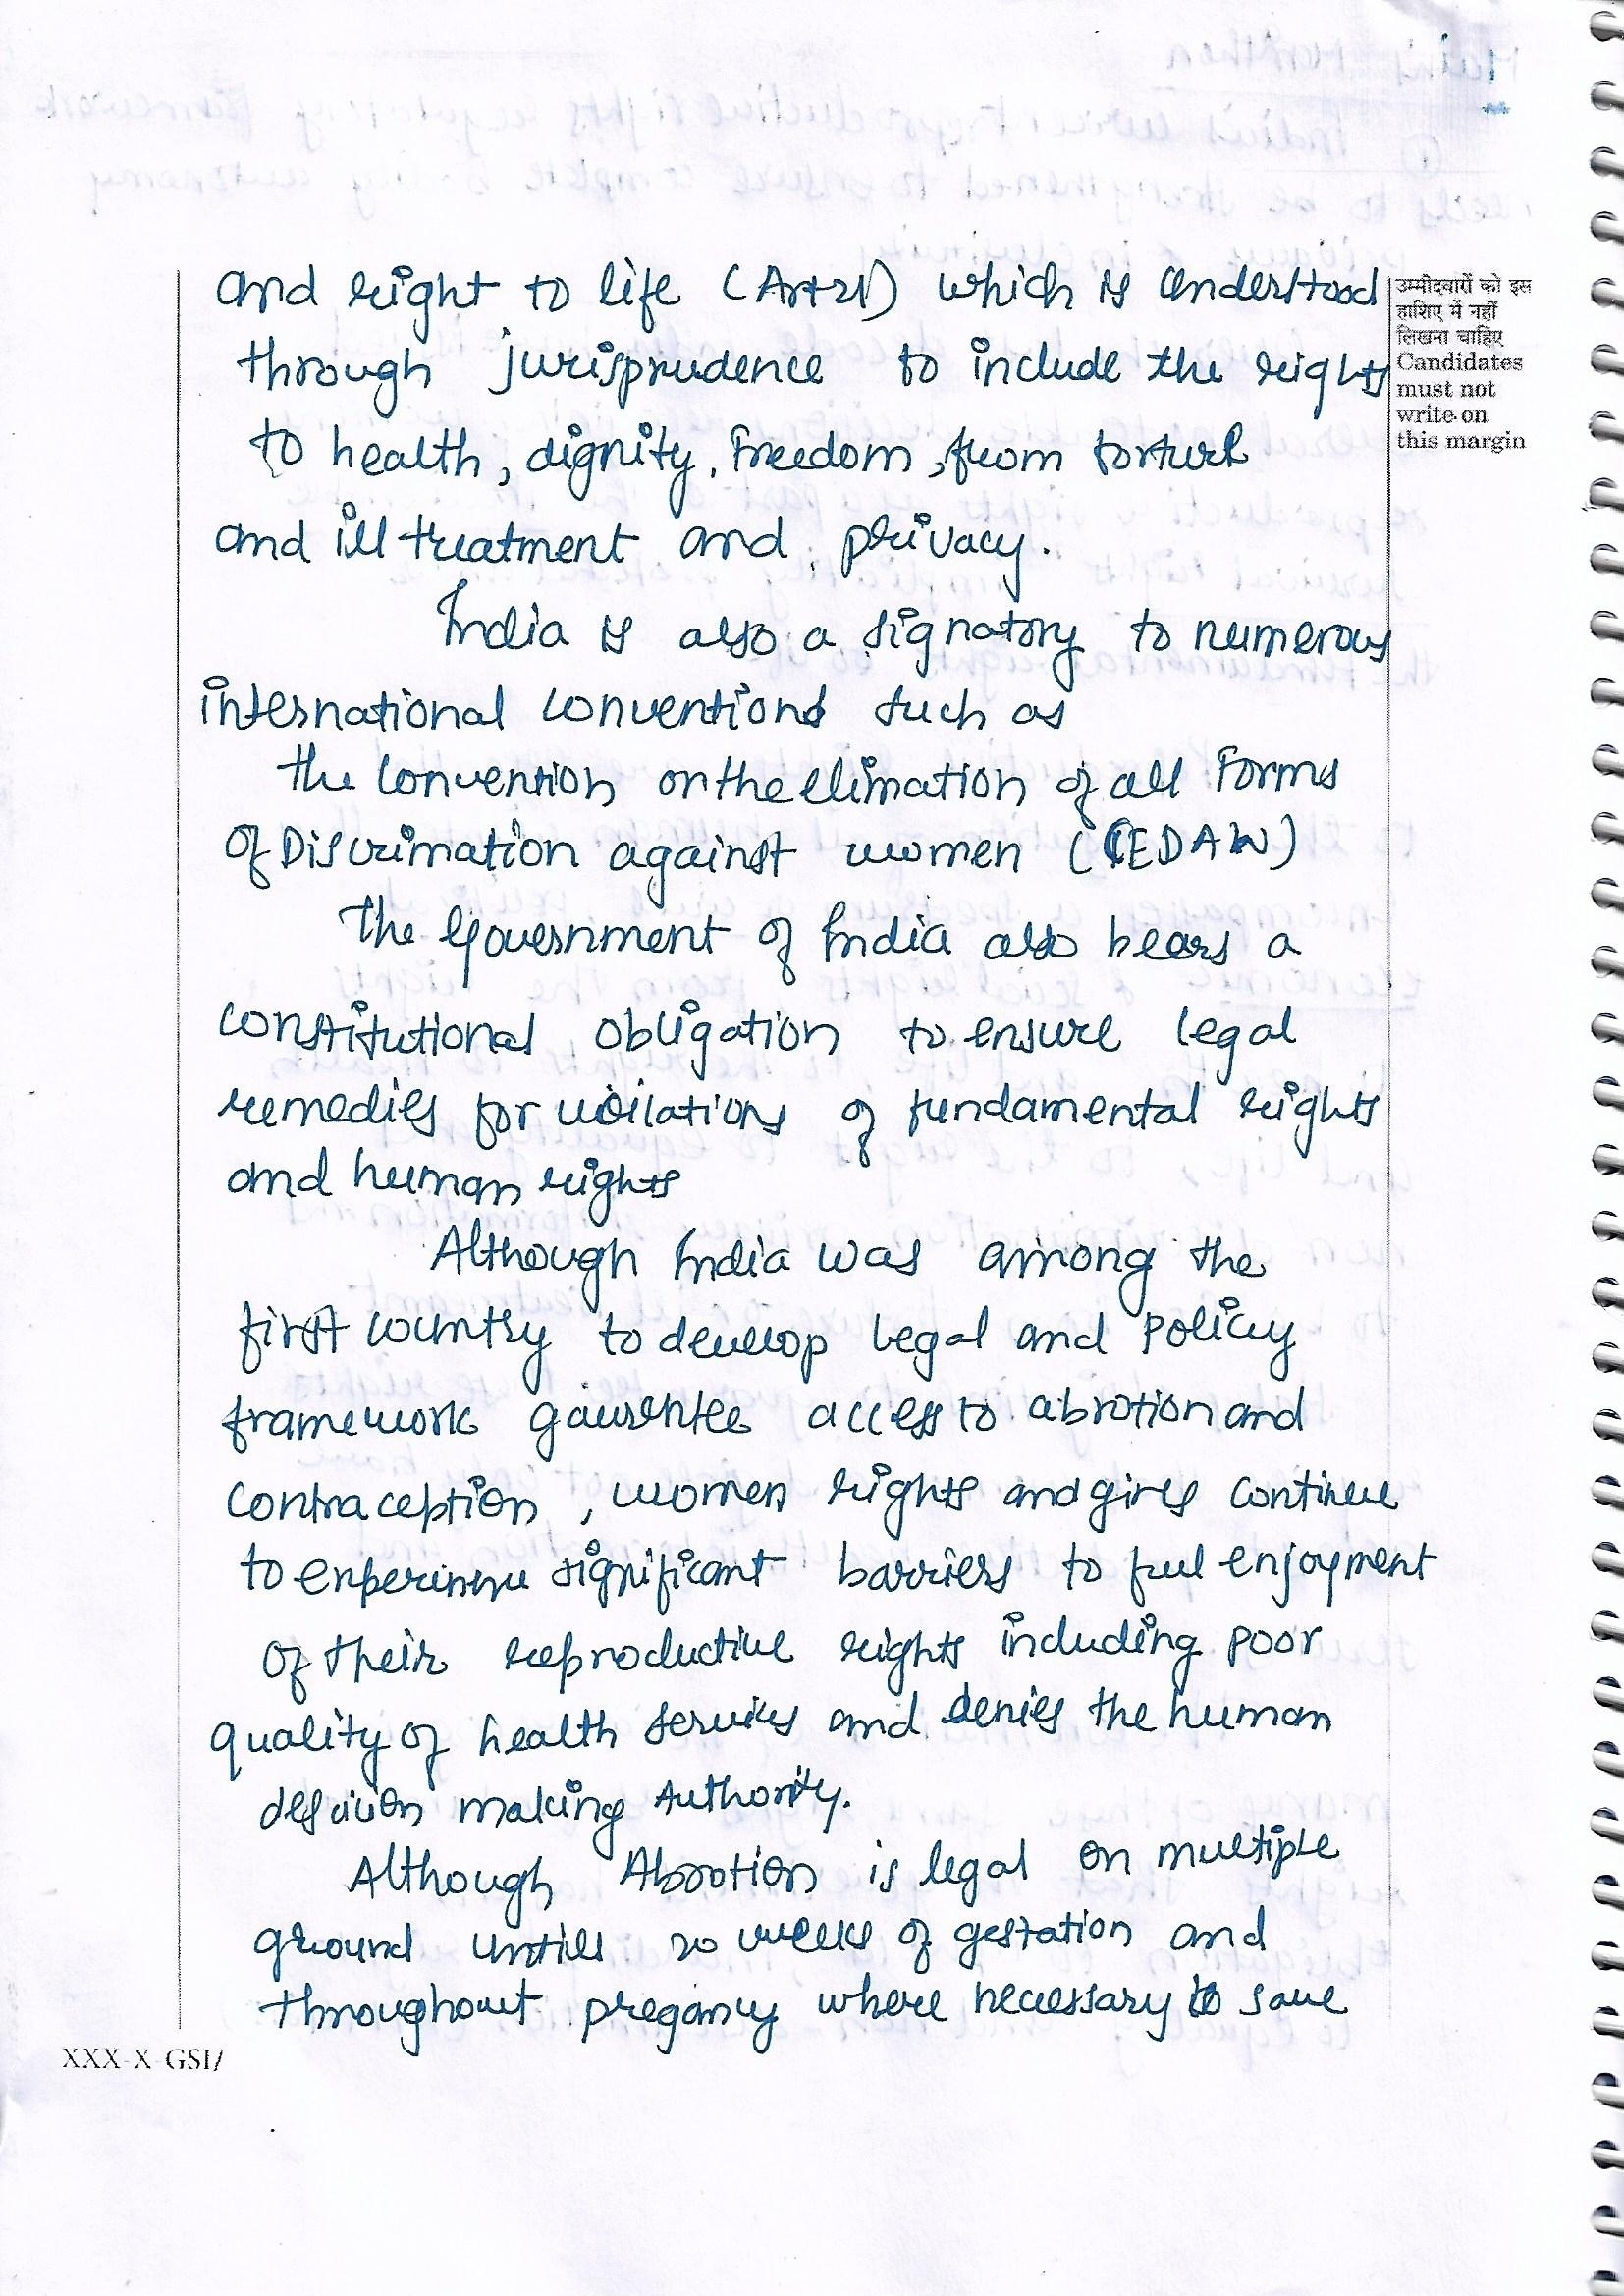 and right to life (Art 21) which is understood
through jurisprudence to include the rights
to health, dignity, freedom, from torture
and ill treatment and privacy.
India is also a signatory to numerous
international conventions such as
the convention on the elimation of all Forms
of Discrimation against women (CEDAW)
The Government of India also bears a
constitutional obligation to ensure legal
remedies for voilations of fundamental rights
and human rights
Although India was among the
first country to develop legal and policy
framework gaurentee access to abrotion and
contraception, women rights and girls continue
to experience significant barriers to full enjoyment
of their reproductive rights including poor
quality of health services and denies the human
making Authority.
Although Abrotion is legal on multiple
ground untill 20 weeks of gestation and
throughout pregancy where necessary to save
उम्मीदवारों को इस
हाशिए में नहीं
लिखना चाहिए
Candidates
must not
write on
this margin
XXX-X-GSI/